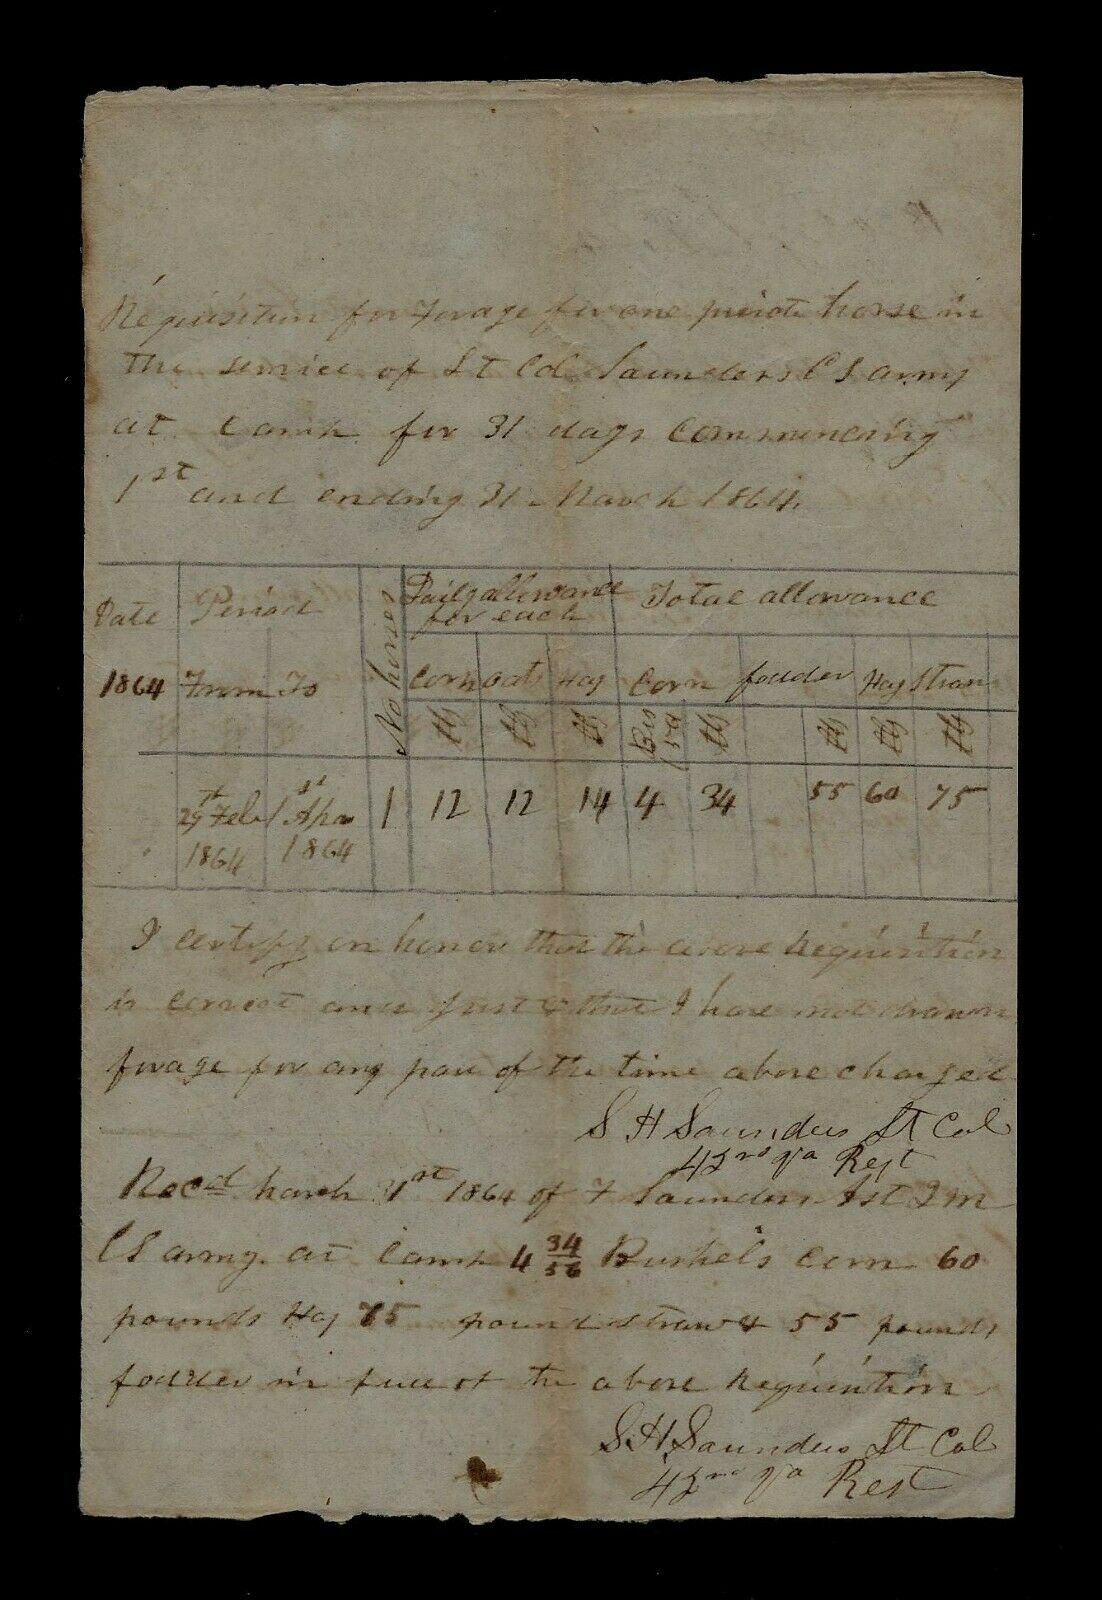 Requisition for Forage for one private horse in
the service of Lt Col Saunders C S army
at Camp for 31 days commencing
1st and ending 31 March 1864.
Date Period No horses Daily allowance for each Total allowance
1864 From To Corn oats Hay Corn fodder Hay Straw
lb lb lb Bus lb lb lb lb
29th Feb 1864 1st Apr 1864 1 12 12 14 4 34 55 60 75
I certify on honor that the above Requisition
is correct and just & that I have not drawn
forage for any part of the time above charged
S H Saunders Lt Col
42nd Va Regt
Recd March 31st 1864 of F Saunders Ast Q M
C S army at Camp 4 34/56 Bushels corn 60
pounds Hay 75 pounds straw & 55 pounds
fodder in full of the above Requisition
S H Saunders Lt Col
42nd Va Regt